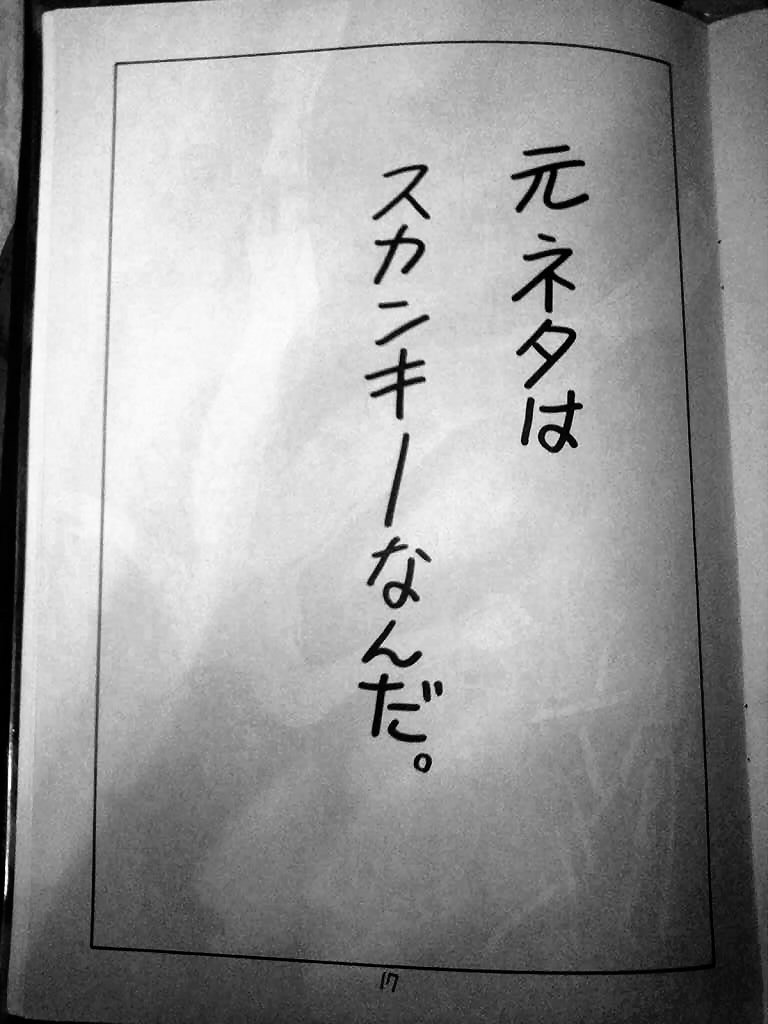 元ネタは
スカンキーなんだ。
17